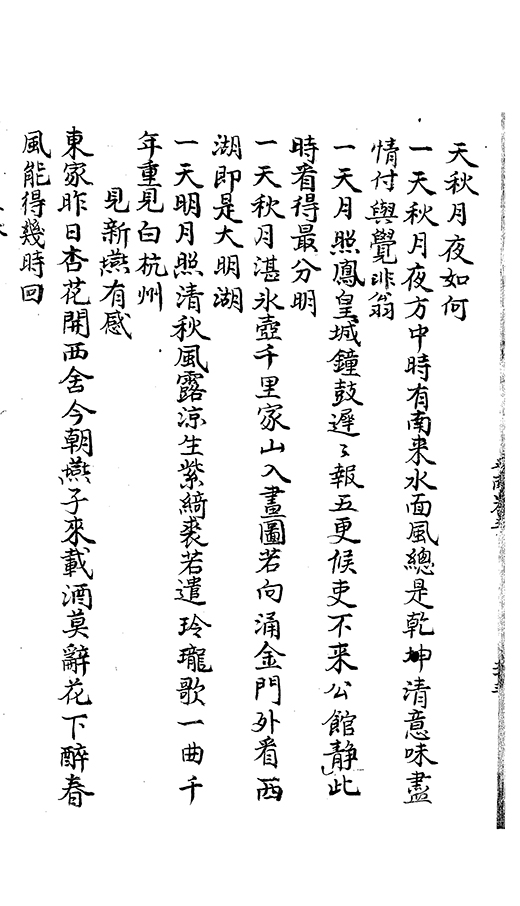 天秋月夜如何
一天秋月夜方中時有南来水面風總是乾坤清意味盡
情付與覺非翁
一天月照鳳皇城鐘鼓遲〻報五更候吏不来公館静此
時看得最分明
一天秋月湛氷壺千里家山入畫圖若向涌金門外看西
湖即是大明湖
一天明月照清秋風露凉生紫綺裘若遣玲瓏歌一曲千
年重見白杭州
見新燕有感
東家昨日杏花開西舍今朝燕子來載酒莫辭花下醉春
風能得幾時回